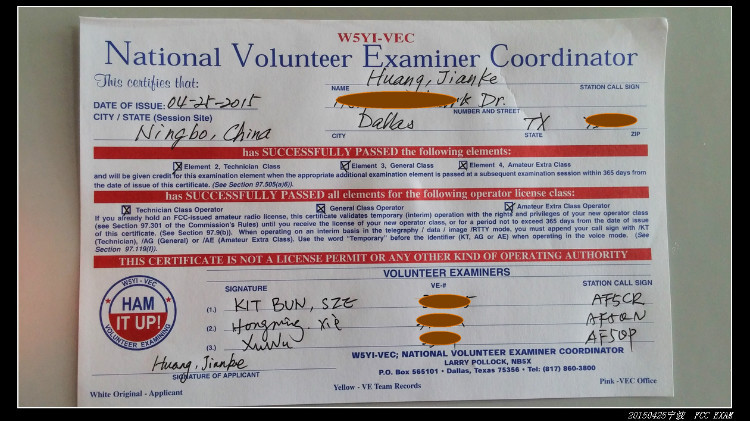 W5YI-VEC
National Volunteer Examiner Coordinator
This certifies that:
Huang, Jianke
NAME
STATION CALL SIGN
DATE OF ISSUE: 04-25-2015
Dr.
NUMBER AND STREET
CITY / STATE (Session Site)
Dallas TX
Ningbo, China
CITY STATE ZIP
has SUCCESSFULLY PASSED the following elements:
Element 2, Technician Class Element 3, General Class Element 4, Amateur Extra Class
and will be given credit for this examination element when the appropriate additional examination element is passed at a subsequent examination session within 365 days from
the date of issue of this certificate. (See Section 97.505(a)(6)).
has SUCCESSFULLY PASSED all elements for the following operator license class:
Technician Class Operator General Class Operator Amateur Extra Class Operator
If you already hold an FCC-issued amateur radio license, this certificate validates temporary (interim) operation with the rights and privileges of your new operator class
(see Section 97.301 of the Commission's Rules) until you receive the license of your new operator class, or for a period not to exceed 365 days from the date of issue
of this certificate. (See Section 97.9(b)). When operating on an interim basis in the telegraphy / data / image /RTTY mode, you must append your call sign with /KT
(Technician), /AG (General) or /AE (Amateur Extra Class). Use the word "Temporary" before the identifier (KT, AG or AE) when operating in the voice mode. (See
Section 97.119(f)).
THIS CERTIFICATE IS NOT A LICENSE PERMIT OR ANY OTHER KIND OF OPERATING AUTHORITY
VOLUNTEER EXAMINERS
SIGNATURE VE-# STATION CALL SIGN
W5YI - VEC
HAM
IT UP!
VOLUNTEER EXAMINING
(1.) KIT BUN, SZE AF5CR
(2.) Hongming Xie AF5QN
(3.) Xu Wu AF5QP
Huang, Jianke
SIGNATURE OF APPLICANT
W5YI-VEC; NATIONAL VOLUNTEER EXAMINER COORDINATOR
LARRY POLLOCK, NB5X
P.O. Box 565101 • Dallas, Texas 75356 • Tel: (817) 860-3800
White Original - Applicant Yellow - VE Team Records Pink -VEC Office
20150425宁波 FCC EXAM